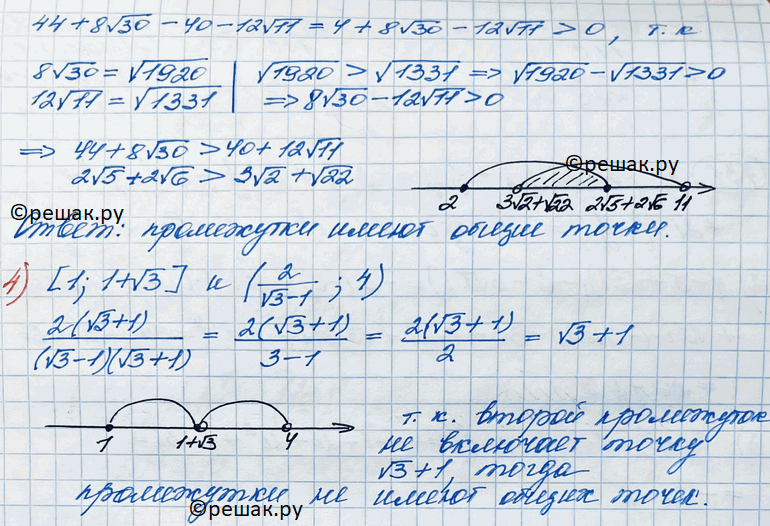 44 + 8√30 - 40 - 12√11 = 4 + 8√30 - 12√11 > 0, т. к
8√30 = √1920 | √1920 > √1331 => √1920 - √1331 > 0
12√11 = √1331 | => 8√30 - 12√11 > 0
=> 44 + 8√30 > 40 + 12√11
2√5 + 2√6 > 3√2 + √22
©решак.ру
2 3√2+√22 2√5+2√6 11
©решак.ру
Ответ: промежутки имеют общие точки.
4) [1; 1+√3] и (2/(√3-1); 4)
2(√3+1)/((√3-1)(√3+1)) = 2(√3+1)/(3-1) = 2(√3+1)/2 = √3+1
1 1+√3 4
т. к. второй промежуток
не включает точку
√3+1, тогда
промежутки не имеют общих точек.
©решак.ру